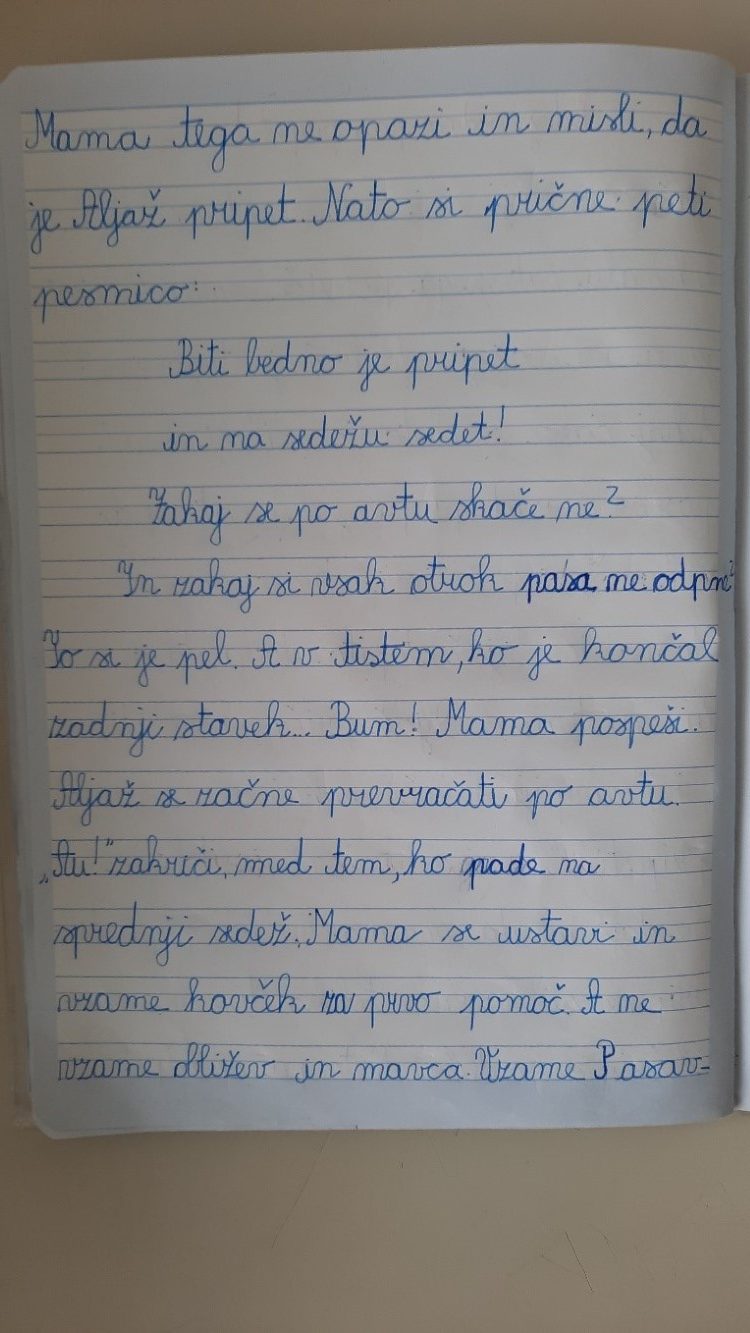 Mama tega ne opazi in misli, da
je Aljaž pripet. Nato si prične peti
pesmico:
Biti bedno je pripet
in na sedežu sedet!
Zakaj se po avtu skače ne?
In zakaj si vsak otrok pasa ne odpne?
To si je pel. A v tistem, ko je končal
zadnji stavek... Bum! Mama pospeši.
Aljaž se začne prevračati po avtu.
„Au!" zakriči, med tem, ko pade na
sprednji sedež. Mama se ustavi in
vzame kovček za prvo pomoč. A ne
vzame obližev in mavca. Vzame Pasav-